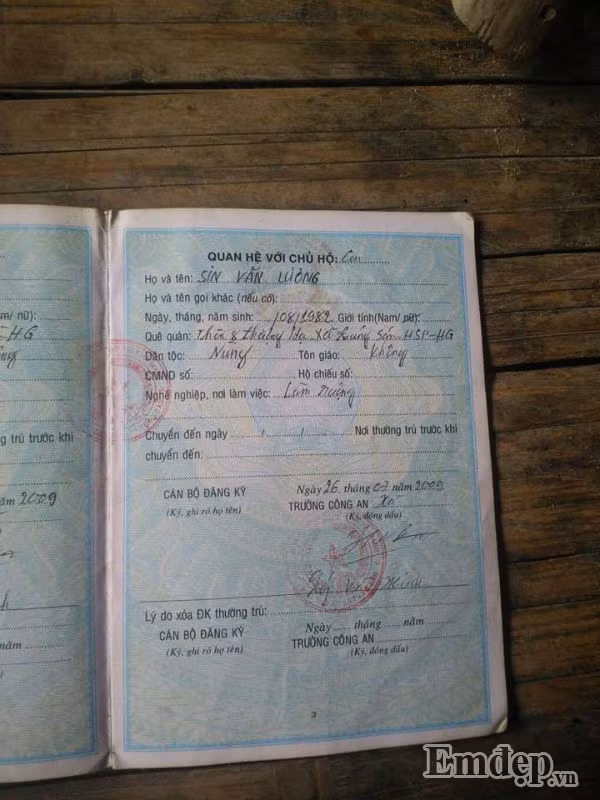 QUAN HỆ VỚI CHỦ HỘ: Con
Họ và tên: SÌN VĂN LƯỜNG
Họ và tên gọi khác (nếu có):
m/ nữ): Ngày, tháng, năm sinh: /08/1982 Giới tính(Nam/ nữ):
HG Quê quán: Thôn 8 Thượng Hạ, Xã Lùng Sán HSP-HG
Dân tộc: Nùng Tôn giáo: Không
CMND số: Hộ chiếu số:
Nghề nghiệp, nơi làm việc: Làm Ruộng
ng trú trước khi Chuyển đến ngày / / Nơi thường trú trước khi
chuyển đến:
ăm 2009 CÁN BỘ ĐĂNG KÝ Ngày 26 tháng 07 năm 2009
(Ký, ghi rõ họ tên) TRƯỜNG CÔNG AN Xã
(Ký, đóng dấu)
Lý do xóa ĐK thường trú:
năm CÁN BỘ ĐĂNG KÝ Ngày tháng năm
(Ký, ghi rõ họ tên) TRƯỞNG CÔNG AN
(Ký, đóng dấu)
3
Emdẹp.vn